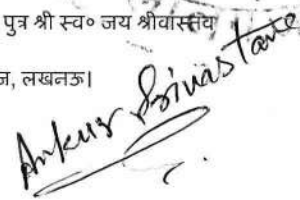 पुत्र श्री स्व० जय श्रीवास्तव
ज, लखनऊ।
Ankur Srivastava